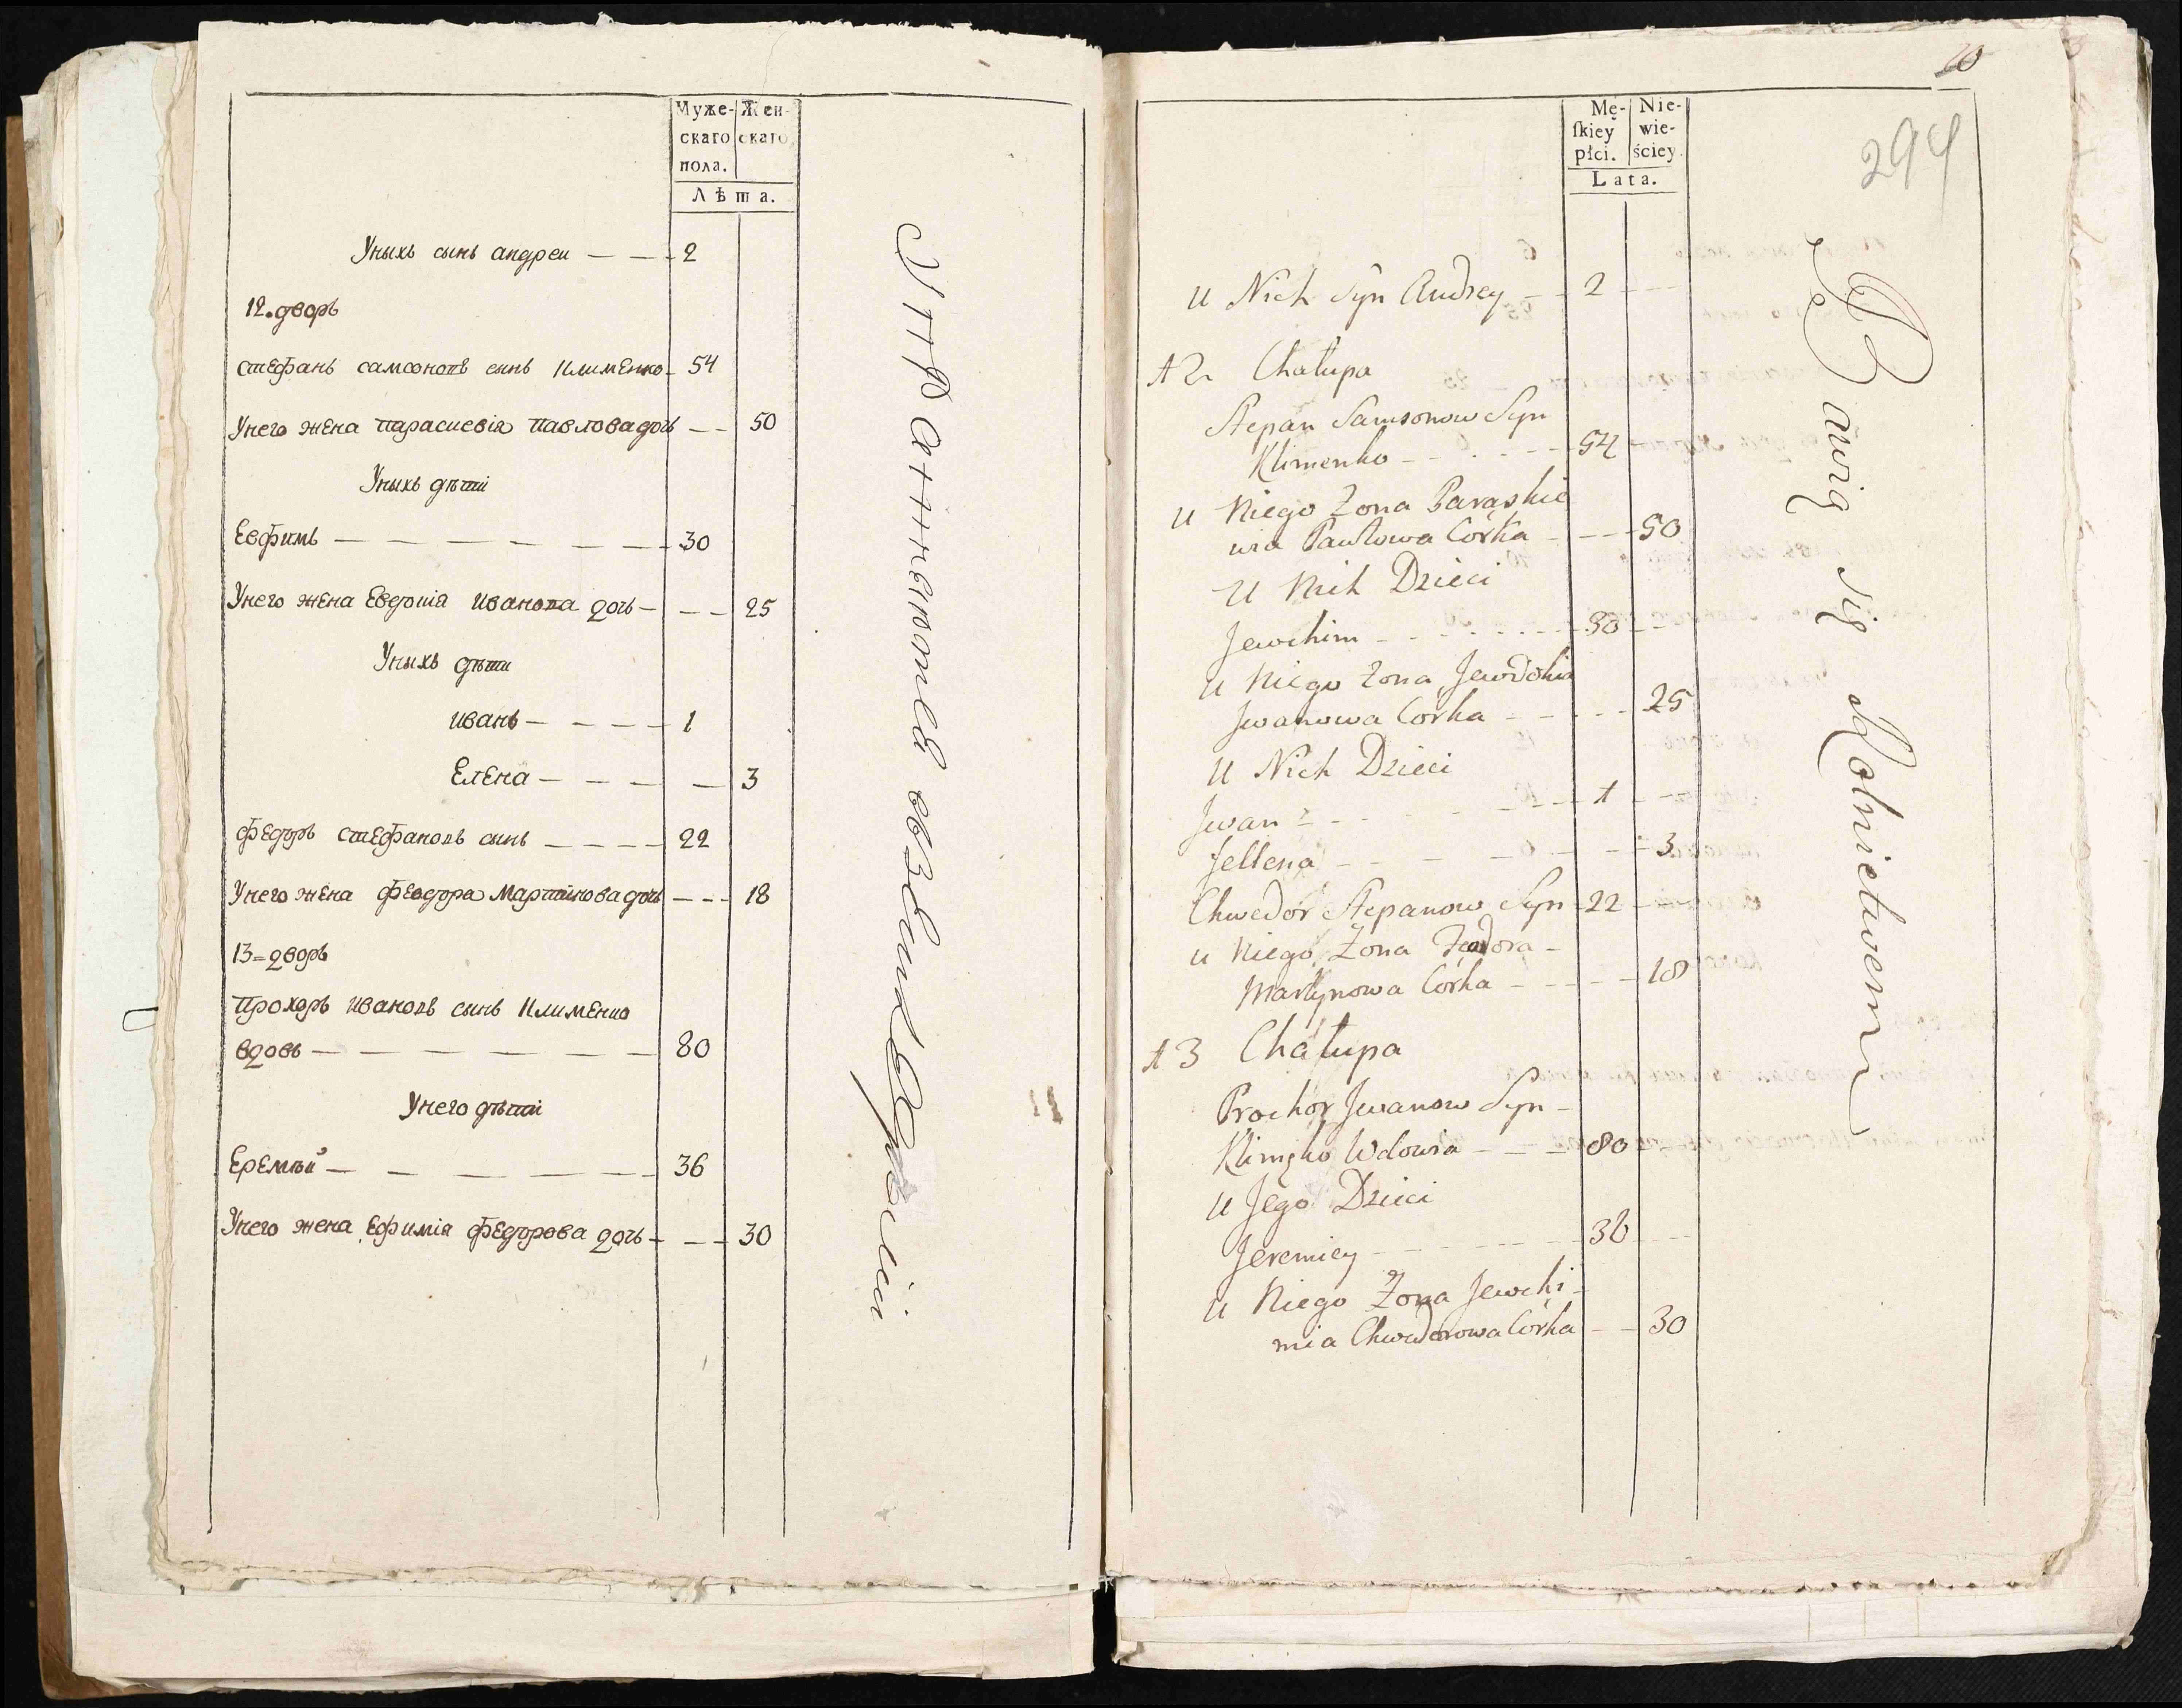 Муже-
скаго
пола.
Жен-
скаго
Лѣта.
Уныхъ сынъ андреи — — — 2
12. дворъ
стефанъ самсоновъ сынъ клименко — 54
Унего жена параскевiа павлова дочь — — 50
Уныхъ дѣти
Евфимъ — — — — — — — 30
Унего жена Евдокiа иванова дочь — — — 25
Уныхъ дѣти
иванъ — — — — 1
Елена — — — — 3
федоръ стефановъ сынъ — — — — 22
Унего жена феодора мартинова дочь — — - 18
13 = дворъ
прохоръ ивановъ сынъ клименко
вдовъ — — — — — — — 80
Унего дѣти
Еремѣй — — — — — — 36
Унего жена Ефимiа федорова дочь — — — 30
упражняются вземледѣлiи
10
294
Mę-
ſkiey
płci.
Nie-
wie-
ściey.
Lata.
u Nich Syn Andrey — 2
12 Chałupa
Stepan Samsonow Syn
Klimenko - - - - - 54
u Niego Zona Paraskie
wia Pawłowa Córka - - - 50
U Nich Dzieci
Jewchim - - - - - - 30
u Niego Zona Jewdokia
Jwanowa Córka - - - - 25
U Nich Dzieci
Jwan - - - - - 1
Jellena - - - - - - 3
Chwedor Stepanow Syn 22
u Niego Zona Feodora -
Martynowa Córka - - - - 18
13 Chałupa
Prochor Jwanow Syn -
Klimęko Wdowia - - - 80
u Jego Dzieci
Jeremiey - - - - - 36
u Niego Zona Jewchi-
mia Chwedorowa Córka - - 30
Bawią się Rolnictwem